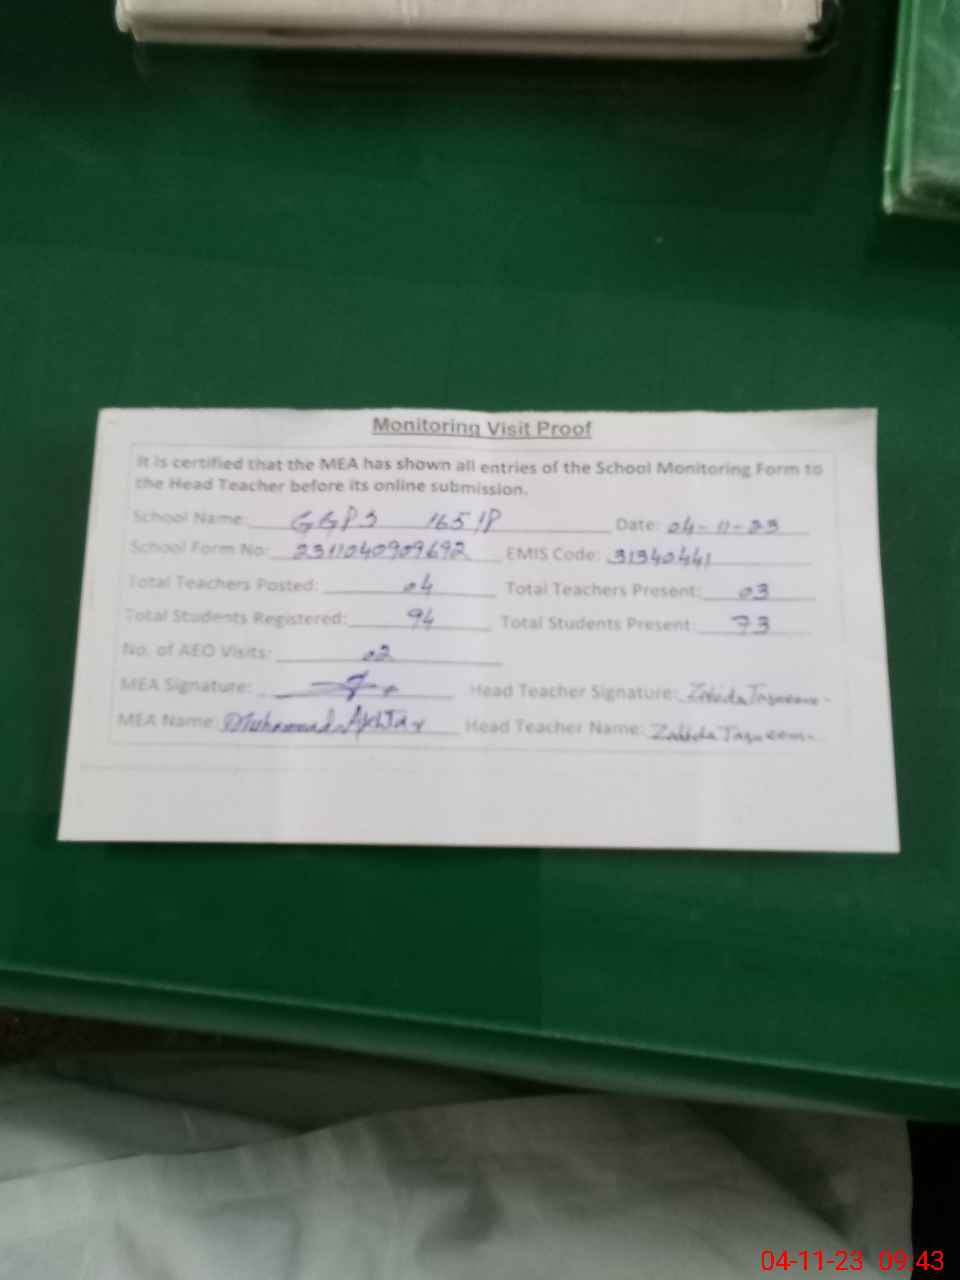 Monitoring Visit Proof
It is certified that the MEA has shown all entries of the School Monitoring Form to
the Head Teacher before its online submission.
School Name: GGPS 165/P Date: 04-11-23
School Form No: 2311040909692 EMIS Code: 31340441
Total Teachers Posted: 04 Total Teachers Present: 03
Total Students Registered: 94 Total Students Present: 73
No. of AEO Visits: 02
MEA Signature: Head Teacher Signature: Zahida
MEA Name: Muhammad Akhtar Head Teacher Name: Zahida
04-11-23 09:43